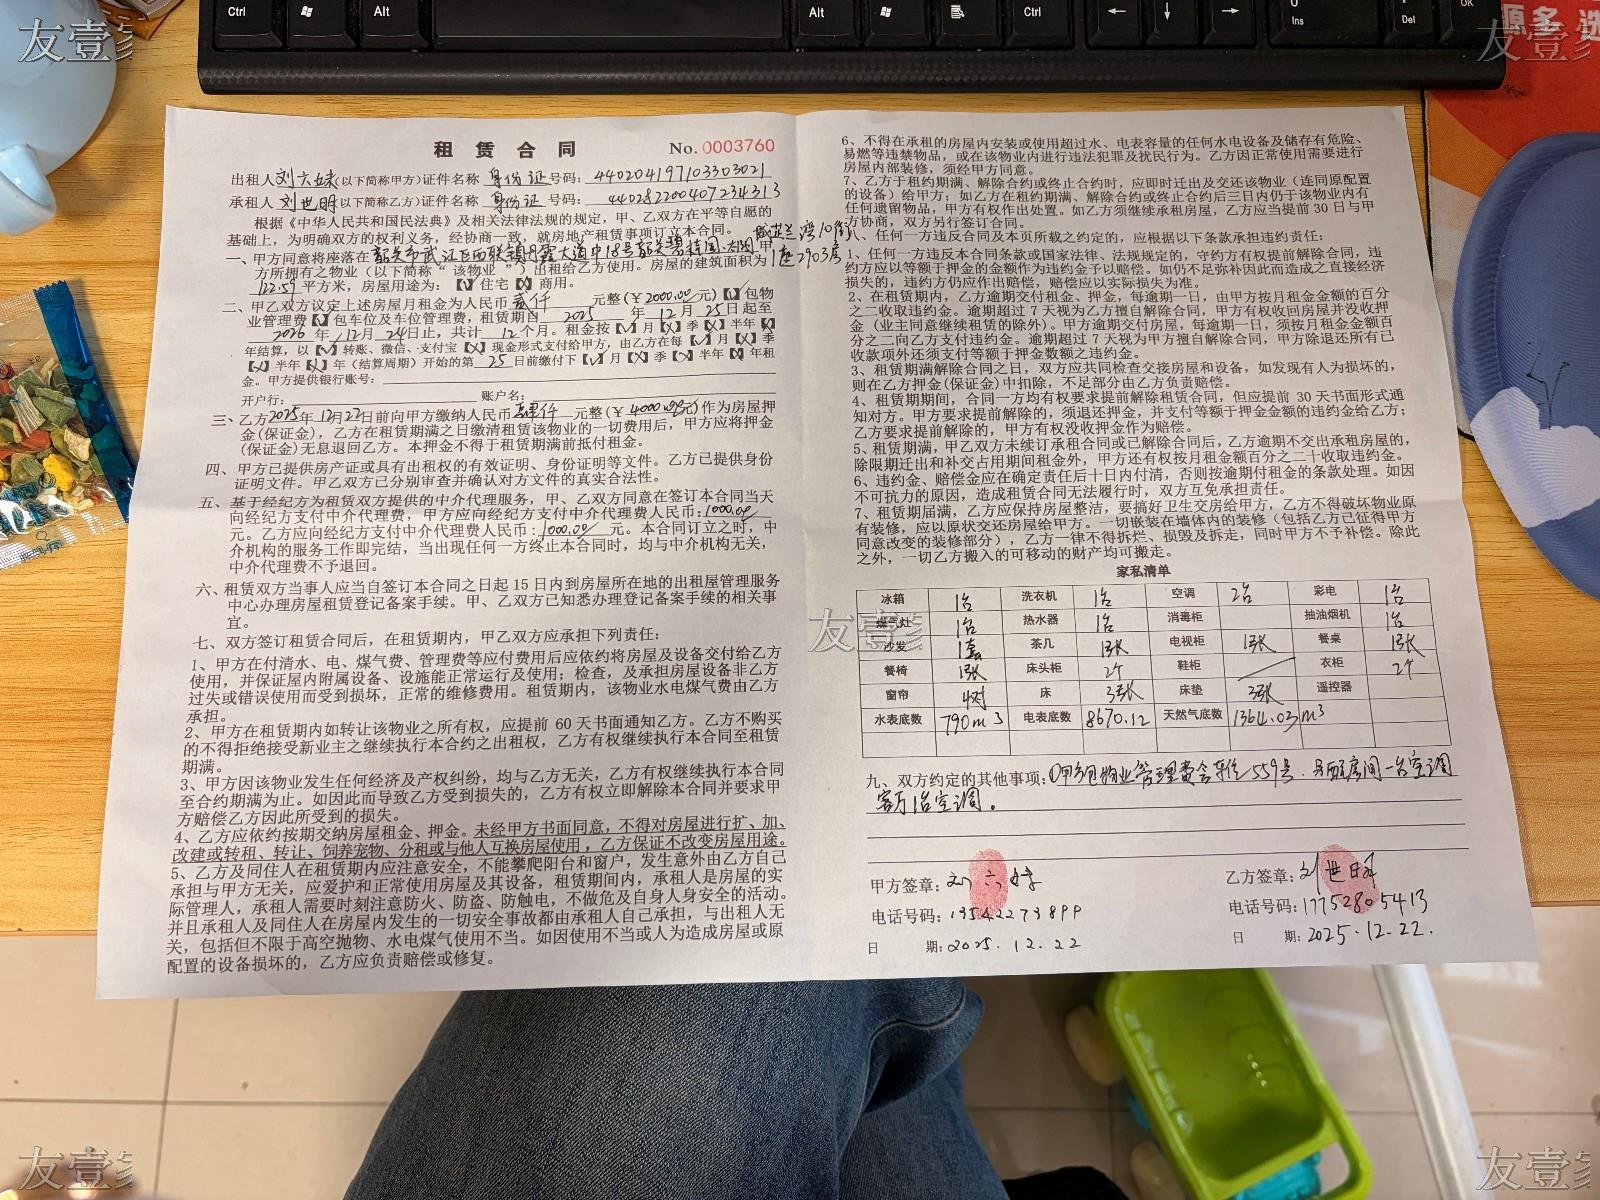 友壹家
友壹家
Ctrl
Alt
Alt
Ctrl
Ins
Del
OK
源多 选
租 赁 合 同
No. 0003760
出租人 刘六妹 (以下简称甲方)证件名称 身份证 号码: 440204197103303021
承租人 刘世明 (以下简称乙方)证件名称 身份证 号码: 440282200407234213
根据《中华人民共和国民法典》及相关法律法规的规定，甲、乙双方在平等自愿的
基础上，为明确双方的权利义务，经协商一致，就房地产租赁事项订立本合同。
一、甲方同意将座落在 韶关市武江区西联镇丹霞大道中18号韶关碧桂园·太阳城芷兰湾10街1座2903房 甲
方所拥有之物业（以下简称“该物业”）出租给乙方使用。房屋的建筑面积为
122.59 平方米，房屋用途为：【√】住宅【X】商用。
二、甲乙双方议定上述房屋月租金为人民币 贰仟 元整(￥2000.00元)【√】包物
业管理费【√】包车位及车位管理费，租赁期自 2025 年 12 月 25 日起至
2026 年 12 月 24 日止，共计 12 个月。租金按【√】月【X】季【X】半年【X】
年结算，以【√】转账、微信、支付宝【X】现金形式支付给甲方，由乙方在每【√】月【X】季
【X】半年【X】年（结算周期）开始的第 25 日前缴付下【√】月【X】季【X】半年【X】年租
金。甲方提供银行账号：
开户行： 账户名：
三、乙方 2025 年 12 月 22 日前向甲方缴纳人民币 肆仟 元整(￥4000.00元)作为房屋押
金(保证金)，乙方在租赁期满之日缴清租赁该物业的一切费用后，甲方应将押金
(保证金)无息退回乙方。本押金不得于租赁期满前抵付租金。
四、甲方已提供房产证或具有出租权的有效证明、身份证明等文件。乙方已提供身份
证明文件。甲乙双方已分别审查并确认对方文件的真实合法性。
五、基于经纪方为租赁双方提供的中介代理服务，甲、乙双方同意在签订本合同当天
向经纪方支付中介代理费，甲方应向经纪方支付中介代理费人民币：1000.00
元。乙方应向经纪方支付中介代理费人民币：1000.00 元。本合同订立之时，中
介机构的服务工作即完结，当出现任何一方终止本合同时，均与中介机构无关，
中介代理费不予退回。
六、租赁双方当事人应当自签订本合同之日起 15 日内到房屋所在地的出租屋管理服务
中心办理房屋租赁登记备案手续。甲、乙双方已知悉办理登记备案手续的相关事
宜。
七、双方签订租赁合同后，在租赁期内，甲乙双方应承担下列责任：
1、甲方在付清水、电、煤气费、管理费等应付费用后应依约将房屋及设备交付给乙方
使用，并保证屋内附属设备、设施能正常运行及使用；检查，及承担房屋设备非乙方
过失或错误使用而受到损坏，正常的维修费用。租赁期内，该物业水电煤气费由乙方
承担。
2、甲方在租赁期内如转让该物业之所有权，应提前 60 天书面通知乙方。乙方不购买
的不得拒绝接受新业主之继续执行本合约之出租权，乙方有权继续执行本合同至租赁
期满。
3、甲方因该物业发生任何经济及产权纠纷，均与乙方无关，乙方有权继续执行本合同
至合约期满为止。如因此而导致乙方受到损失的，乙方有权立即解除本合同并要求甲
方赔偿乙方因此所受到的损失。
4、乙方应依约按期交纳房屋租金、押金。未经甲方书面同意，不得对房屋进行扩、加、
改建或转租、转让、饲养宠物、分租或与他人互换房屋使用，乙方保证不改变房屋用途。
5、乙方及同住人在租赁期内应注意安全，不能攀爬阳台和窗户，发生意外由乙方自己
承担与甲方无关，应爱护和正常使用房屋及其设备，租赁期间内，承租人是房屋的实
际管理人，承租人需要时刻注意防火、防盗、防触电，不做危及自身人身安全的活动。
并且承租人及同住人在房屋内发生的一切安全事故都由承租人自己承担，与出租人无
关，包括但不限于高空抛物、水电煤气使用不当。如因使用不当或人为造成房屋或原
配置的设备损坏的，乙方应负责赔偿或修复。
6、不得在承租的房屋内安装或使用超过水、电表容量的任何水电设备及储存有危险、
易燃等违禁物品，或在该物业内进行违法犯罪及扰民行为。乙方因正常使用需要进行
房屋内部装修，须经甲方同意。
7、乙方于租约期满、解除合约或终止合约时，应即时迁出及交还该物业（连同原配置
的设备）给甲方；如乙方在租约期满、解除合约或终止合约后三日内仍于该物业内有
任何遗留物品，甲方有权作出处置。如乙方须继续承租房屋，乙方应当提前 30 日与甲
方协商，双方另行签订合同。
八、任何一方违反本合同及本页所载之约定的，应根据以下条款承担违约责任：
1、任何一方违反本合同条款或国家法律、法规规定的，守约方有权提前解除合同，违
约方应以等额于押金的金额作为违约金予以赔偿。如仍不足弥补因此而造成之直接经济
损失的，违约方仍应作出赔偿，赔偿应以实际损失为准。
2、在租赁期内，乙方逾期交付租金、押金，每逾期一日，由甲方按月租金金额的百分
之二收取违约金。逾期超过 7 天视为乙方擅自解除合同，甲方有权收回房屋并没收押
金（业主同意继续租赁的除外）。甲方逾期交付房屋，每逾期一日，须按月租金金额百
分之二向乙方支付违约金。逾期超过 7 天视为甲方擅自解除合同，甲方除退还所有已
收款项外还须支付等额于押金数额之违约金。
3、租赁期满解除合同之日，双方应共同检查交接房屋和设备，如发现有人为损坏的，
则在乙方押金(保证金)中扣除，不足部分由乙方负责赔偿。
4、租赁期期间，合同一方均有权要求提前解除租赁合同，但应提前 30 天书面形式通
知对方。甲方要求提前解除的，须退还押金，并支付等额于押金金额的违约金给乙方；
乙方要求提前解除的，甲方有权没收押金作为赔偿。
5、租赁期满，甲乙双方未续订承租合同或已解除合同后，乙方逾期不交出承租房屋的，
除限期迁出和补交占用期间租金外，甲方还有权按月租金额百分之二十收取违约金。
6、违约金、赔偿金应在确定责任后十日内付清，否则按逾期付租金的条款处理。如因
不可抗力的原因，造成租赁合同无法履行时，双方互免承担责任。
7、租赁期届满，乙方应保持房屋整洁，要搞好卫生交房给甲方，乙方不得破坏物业原
有装修，应以原状交还房屋给甲方。一切嵌装在墙体内的装修（包括乙方已征得甲方
同意改变的装修部分），乙方一律不得拆烂、损毁及拆走，同时甲方不予补偿。除此
之外，一切乙方搬入的可移动的财产均可搬走。
家私清单
冰箱 1台 洗衣机 1台 空调 2台 彩电 1台
煤气灶 1台 热水器 1台 消毒柜 抽油烟机 1台
沙发 1套 茶几 1张 电视柜 1张 餐桌 1张
餐椅 1张 床头柜 2个 鞋柜 衣柜 2个
窗帘 4对 床 3张 床垫 3张 遥控器
水表底数 790m³ 电表底数 8670.12 天然气底数 1364.03m³
九、双方约定的其他事项：①甲方包物业管理费含车位559号. 另配房间一台空调
客厅1台空调。
甲方签章：刘六妹
电话号码：13542273899
日 期：2025.12.22
乙方签章：刘世明
电话号码：17752805413
日 期：2025.12.22.
友壹家
友壹家
友壹家